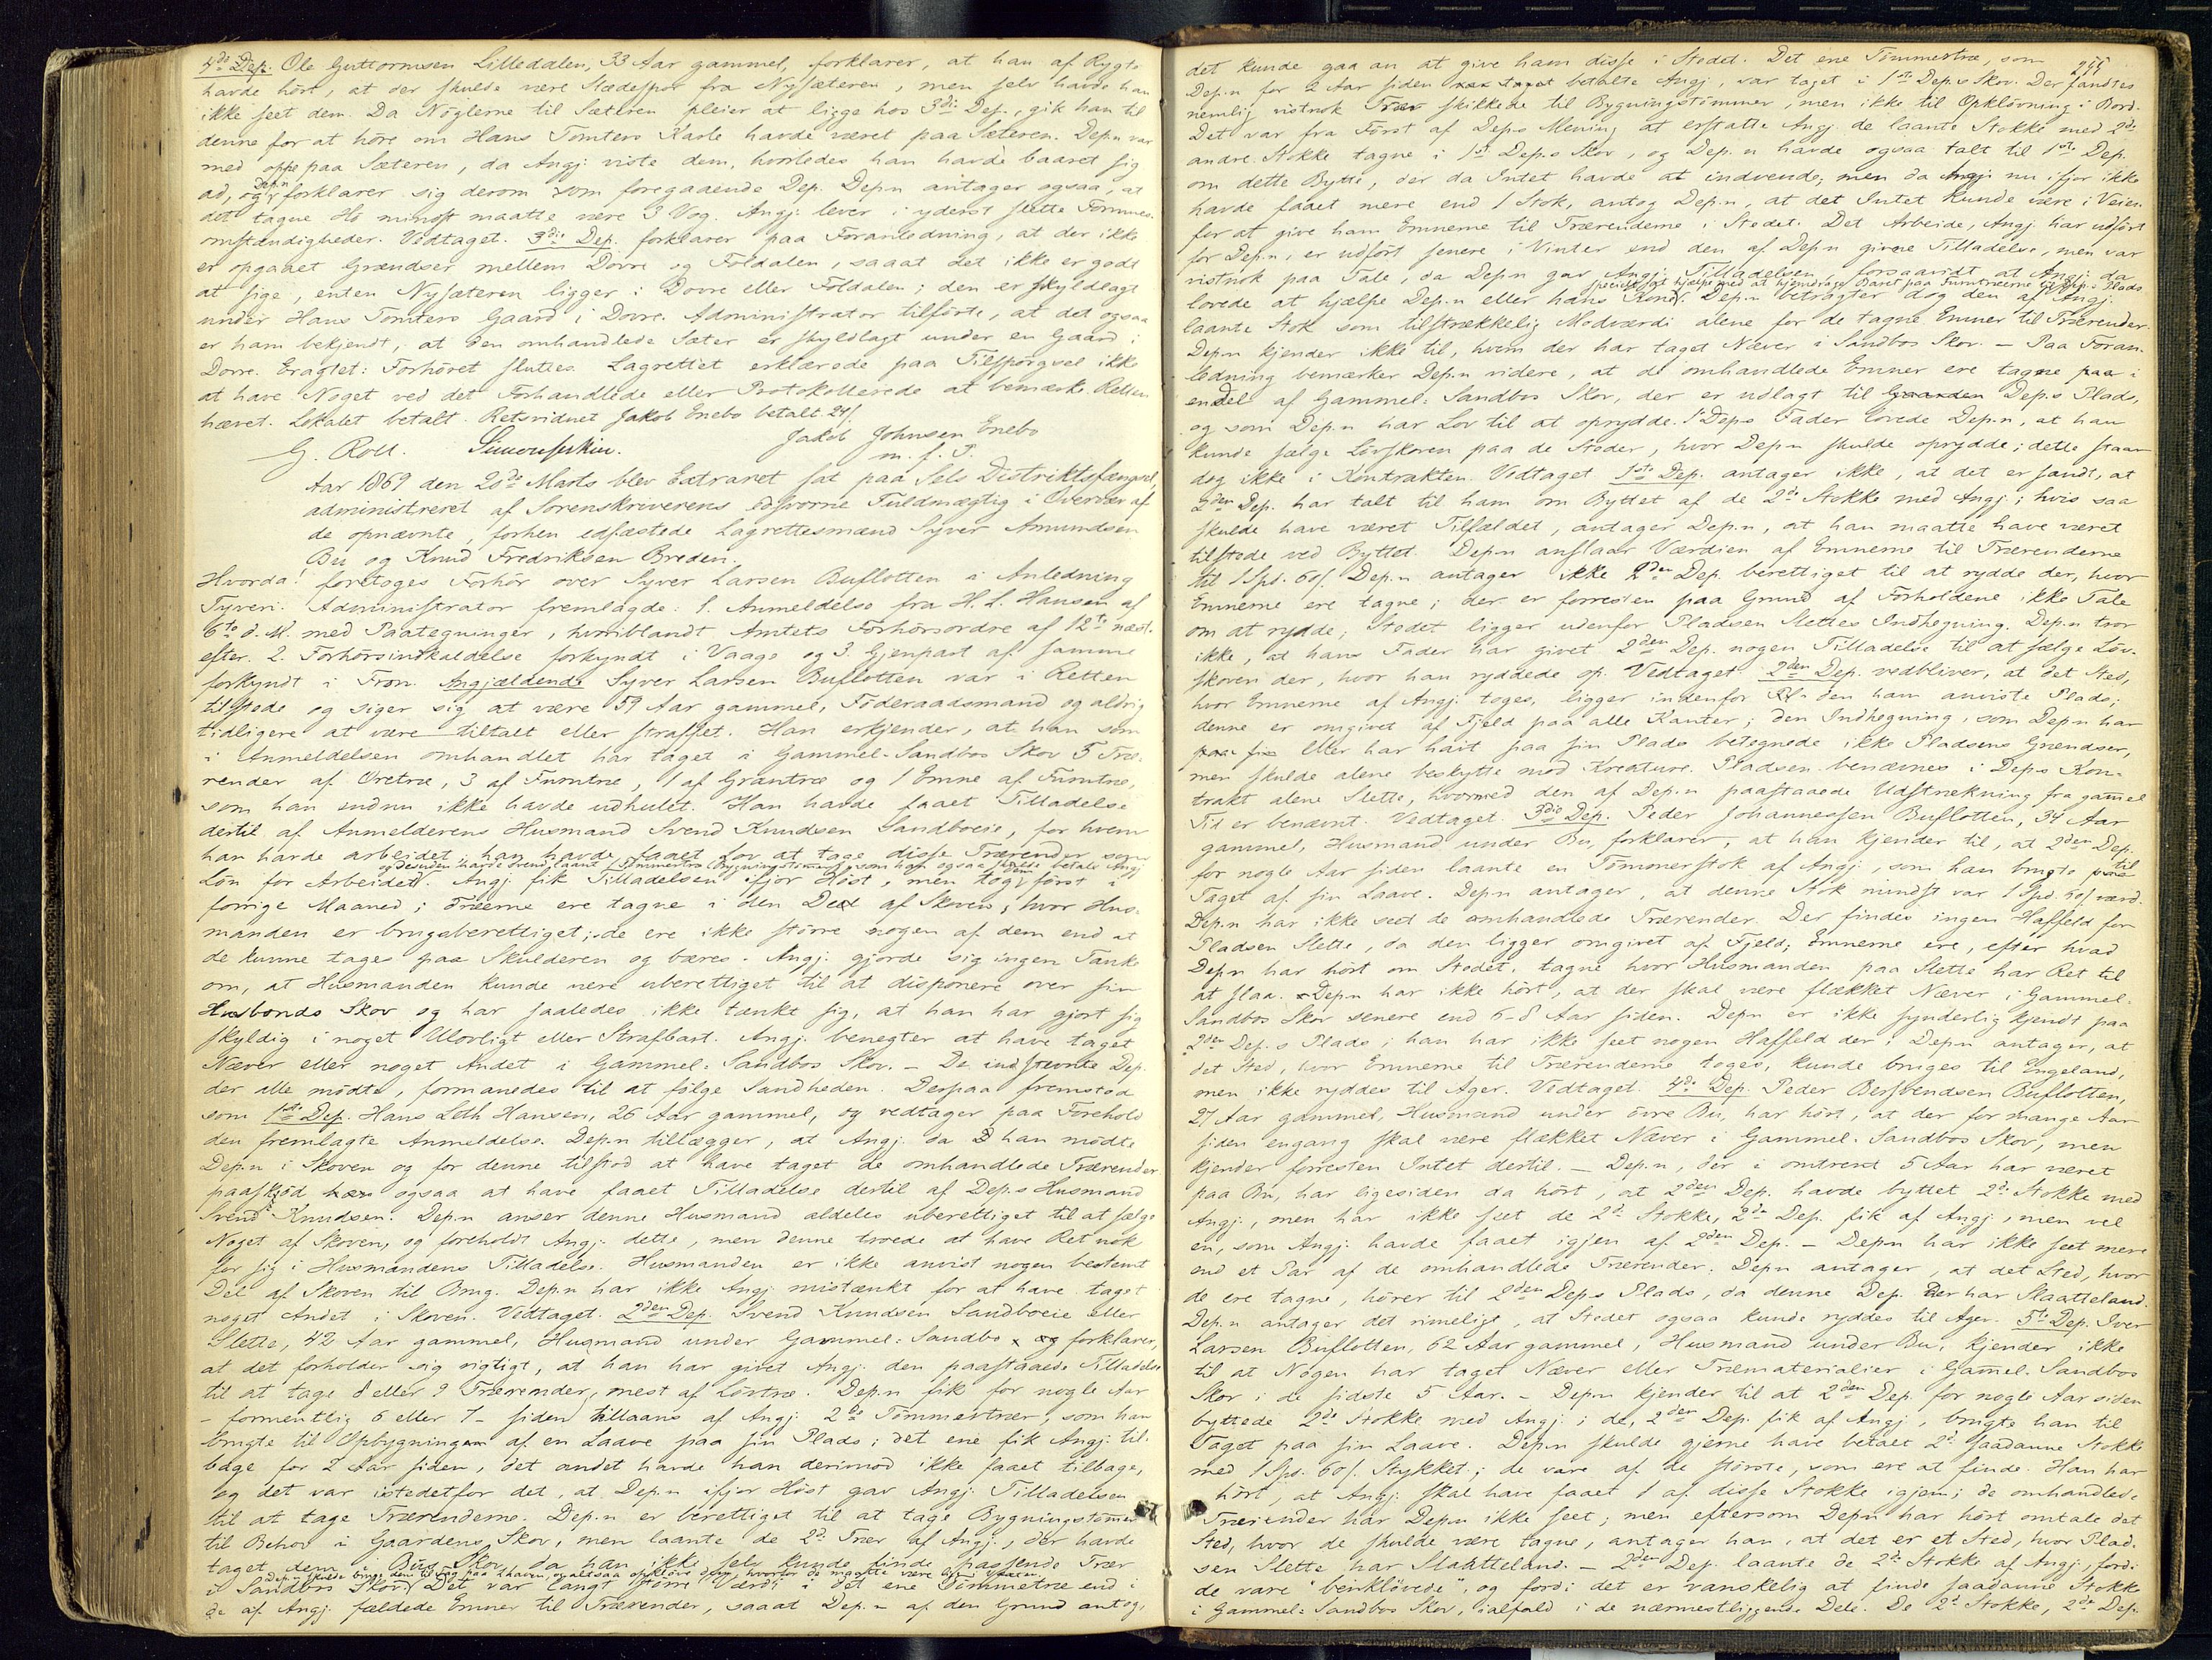 4de Dep. Ole Guttormsen Lilledalen, 33 Aar gammel, forklarer, at han af Rygte
havde hört, at der skulde være Slædespor fra Nysæteren, men selv havde han
ikke seet dem. Da Nöglerne til Sæteren pleier at ligge hos 3die Dep., gik han til
denne for at höre om Hans Tomters Karle havde været paa Sæteren. Dep.n var
med oppe paa Sæteren, da Angj. viste dem, hvorledes han havde baaret sig
ad, og Dep.n forklarer sig derom som foregaaende Dep. Dep.n antager ogsaa, at
det tagne Hö mindst maatte være 3 Vog. Angj. lever i yderst slette Formues-
omstændigheder. Vedtaget. 3die Dep. forklarer paa Foranledning, at der ikke
er opgaaet Grændser mellem Dovre og Foldalen, saaat det ikke er godt
at sige, enten Nysæteren ligger i Dovre eller Foldalen; den er skyldlagt
under Hans Tomters Gaard i Dovre. Administrator tilförte, at det ogsaa
er ham bekjendt, at den omhandlede Sæter er skyldlagt under en Gaard i
Dovre. Eragtet: Forhöret sluttes. Lagrettet erklærede paa Tilspörgsel ikke
at have Noget ved det Forhandlede eller Protokollerede at bemærke. Retten
hævet. Lokalet betalt. Retsvidnet Jakob Enebo betalt 24 s.
G. Roll. Jakob Johnsen Enebo
m. f. P.
Aar 1869 den 20de Marts blev Extraret sat paa Sels Distriktsfængsel,
administreret af Sorenskriverens edsvorne Fuldmægtig i Overvær af
de opnævnte, forhen edfæstede Lagrettesmænd Syver Amundsen
Bu og Knud Fredriksen Breden.
Hvorda! foretoges Forhör over Syver Larsen Buflotten i Anledning
Tyveri. Administrator fremlagde: 1. Anmeldelse fra H. L. Hansen af
6te d. M. med Paategninger, hvoriblandt Amtets Forhörsordre af 12te næst-
efter. 2. Forhörsindkaldelse forkyndt i Vaage og 3. Gjenpart af samme
forkyndt i Fron. Angjældende Syver Larsen Buflotten var i Retten
tilstede og siger sig at være 59 Aar gammel, Föderaadsmand og aldrig
tidligere at være tiltalt eller straffet. Han erkjender, at han som
i Anmeldelsen omhandlet har taget i Gammel-Sandbos Skov 5 Træ-
render af Oretræ, 3 af Furutræ, 1 af Grantræ og 1 Emne af Furutræ,
som han endnu ikke havde udhulet. Han havde faaet Tilladelse
dertil af Anmelderens Husmand Svend Knudsen Sandboeie, for hvem
han havde arbeidet, han havde faaet Lov at tage disse Trærender som
og desuden havde Svend laant 1 Tömmertræ (Bygningstömmer) som han ogsaa skulde betale Angj
Lön for Arbeidet. Angj. fik Tilladelsen ifjor Höst, men tog dem först i
forrige Maaned; Træerne ere tagne i den Deel af Skoven, hvor Hus-
manden er brugsberettiget; de ere ikke större nogen af dem end at
de kunne tages paa Skulderen og bæres. Angj. gjorde sig ingen Tanke
om, at Husmanden kunde være uberettiget til at disponere over sin
Husbonds Skov og har saaledes ikke tænkt sig, at han har gjort sig
skyldig i noget Ulovligt eller Strafbart. Angj. benegter at have taget
Næver eller noget Andet i Gammel-Sandbos Skov. — De indstevnte Dep.
der alle mödte, formanedes til at fölge Sandheden. Derpaa fremstod
som 1ste Dep. Hans Leth Hansen, 26 Aar gammel, og vedtager paa Forehold
den fremlagte Anmeldelse. Dep.n tillægger, at Angj. da han mödte
Dep.n i Skoven og for denne tilstod at have taget de omhandlede Trærender
paaskjöd ogsaa at have faaet Tilladelse dertil af Dep.s Husmand
Svend Knudsen. Dep.n anser denne Husmand aldeles uberettiget til at sælge
Noget af Skoven, og foreholdt Angj. dette, men denne troede at have Ret nok
for sig i Husmandens Tilladelse. Husmanden er ikke anvist nogen bestemt
Del af Skoven til Brug. Dep.n har ikke Angj. mistænkt for at have taget
noget Andet i Skoven. Vedtaget. 2den Dep. Svend Knudsen Sandboeie eller
Slette, 42 Aar gammel, Husmand under Gammel-Sandbo forklarer,
at det forholder sig rigtigt, at han har givet Angj. den paastaaede Tilladelse
til at tage 8 eller 9 Trærender, mest af Lövtræ. Dep.n fik for nogle Aar
– formentlig 6 eller 7 – siden tillaans af Angj. 2de Tömmertræer, som han
brugte til Opbygningen af en Laave paa sin Plads; det ene fik Angj. til-
bage for 2 Aar siden, det andet havde han derimod ikke faaet tilbage,
og det var istedetfor det, at Dep.n ifjor Höst gav Angj. Tilladelsen
til at tage Trærenderne. Dep.n er berettiget til at tage Bygningstömmer
til Behov i Gaardens Skov, men laante de 2de Træer af Angj., der havde
taget dem i Bus Skov, da han ikke selv kunde finde passende Træer
i Sandbos Skov. Det var langt större Værdi i det ene Tömmertræ end i
de af Angj. fældede Emner til Trærender, saaat Dep.n af den Grund antog,
255
det kunde gaa an at give ham disse i Stedet. Det ene Tömmertræ, som
Dep.n for 2 Aar siden betalte Angj. var taget i 1ste Dep.s Skov. Der fandtes
nemlig vistnok Træer skikkede til Bygningstömmer, men ikke til Oplövning i Bord.
Det var fra Först af Dep.s Mening at erstatte Angj. de laante Stokke med 2de
andre Stokke tagne i 1ste Dep.s Skov, og Dep.n havde ogsaa talt til 1ste Dep.
om dette Bytte, der da Intet havde at indvende; men da Angj. nu ifjor ikke
havde faaet mere end 1 Stok, antog Dep.n, at det Intet kunde være i Veien
for at give ham Emnerne til Trærenderne i Stedet. Det Arbeide, Angj. har udfört
for Dep.n, er udfört senere i Vinter end den af Dep.n givne Tilladelse, men var
vistnok paa Tale, da Dep.n gav Angj. Tilladelsen, forsaavidt at Angj. da
specielt at hjælpe med at hjemdrage Baret paa Furutræerne til Dep.s Plads
lovede at hjælpe Dep.n eller hans Kone. Dep.n betragter dog den af Angj.
laante Stok som tilstrækkelig Modværdi alene for de tagne Emner til Trærender.
Dep.n kjender ikke til, hvem der har taget Næver i Sandbos Skov. — Paa Foran-
ledning bemærker Dep.n videre, at de omhandlede Emner ere tagne i
endel af Gammel-Sandbos Skov, der er udlagt til Dep.s Plads,
og som Dep.n har Lov til at oprydde. 1ste Dep.s Fader lovede Dep.n, at han
kunde sælge Lövskoven paa de Steder, hvor Dep.n skulde oprydde; dette staar
dog ikke i Kontrakten. Vedtaget. 1ste Dep. antager ikke, at det er sandt, at
2den Dep. har talt til ham om Byttet af de 2de Stokke med Angj.; hvis saa
skulde have været Tilfældet, antager Dep.n, at han maatte have været
tilstede ved Byttet. Dep.n anslaar Værdien af Emnerne til Trærenderne
til 1 Spd. 60 s. Dep.n antager ikke 2den Dep. berettiget til at rydde der, hvor
Emnerne ere tagne; der er forresten paa Grund af Forholdene ikke Tale
om at rydde; Stedet ligger udenfor Pladsen Slettes Indhegning. Dep.n tror
ikke, at hans Fader har givet 2den Dep. nogen Tilladelse til at sælge Löv-
skoven der, hvor han ryddede op. Vedtaget. 2den Dep. vedbliver, at det Sted,
hvor Emnerne af Angj. toges, ligger indenfor den ham anviste Plads;
denne er omgivet af Fjeld paa alle Kanter; den Indhegning, som Dep.n har
eller har havt paa sin Plads betegnede ikke Pladsens Grændser,
men skulde alene beskytte mod Kreature. Pladsen benævnes i Dep.s Kon-
trakt alene Slette, hvormed den af Dep.n paastaaede Udstrækning fra gammel
Tid er benævnt. Vedtaget. 3die Dep. Peder Johannessen Buflotten, 34 Aar
gammel, Husmand under Bu, forklarer, at han kjender til, at 2den Dep.
for nogle Aar siden laante en Tömmerstok af Angj., som han brugte til
Taget af sin Laave. Dep.n antager, at denne Stok mindst var 1 Spd. 60 s værd.
Dep.n har ikke seet de omhandlede Trærender. Der findes ingen Haffeld for
Pladsen Slette, da den ligger omgivet af Fjeld; Emnerne ere, efter hvad
Dep.n har hört om Stedet, tagne hvor Husmanden paa Slette har Ret til
at slaa. Dep.n har ikke hört, at der skal være flækket Næver i Gammel-
Sandbos Skov senere end 6-8 Aar siden. Dep.n er ikke synderlig kjendt paa
2den Dep.s Plads; han har ikke seet nogen Haffeld der; Dep.n antager, at
det Sted, hvor Emnerne til Trærenderne toges, kunde bruges til Engeland,
men ikke ryddes til Ager. Vedtaget. 4de Dep. Peder Bersvendsen Buflotten,
27 Aar gammel, Husmand under övre Bu, har hört, at der for mange Aar
siden engang skal være flækket Næver i Gammel-Sandbos Skov, men
kjender forresten Intet dertil. — Dep.n, der i omtrent 5 Aar har været
paa Bu, har ligesiden da hört, at 2den Dep. havde byttet 2de Stokke med
Angj., men har ikke seet de 2de Stokke, 2den Dep. fik af Angj., men vel
en, som Angj. havde faaet igjen af 2den Dep. — Dep.n har ikke seet mere
end et Par af de omhandlede Trærender. Dep.n antager, at det Sted, hvor
de ere tagne, hörer til 2den Dep.s Plads, da denne Dep. der har Slaatteland.
Dep.n antager det rimeligt, at Stedet ogsaa kunde ryddes til Ager. 5te Dep. Iver
Larsen Buflotten, 62 Aar gammel, Husmand under Bu, kjender ikke
til at Nogen har taget Næver eller Træmaterialier i Gammel-Sandbos
Skov i de sidste 5 Aar. — Dep.n kjender til at 2den Dep. for nogle Aar siden
byttede 2de Stokke med Angj.; de, 2den Dep. fik af Angj., brugte han til
Taget paa sin Laave. Dep.n skulde gjerne have betalt 2de saadanne Stokke
med 1 Spd. 60 s. Stykket; de vare af de störste, som ere at finde. Han har
hört, at Angj. skal have faaet 1 af disse Stokke igjen; de omhandlede
Trærender har Dep.n ikke seet; men eftersom Dep.n har hört omtale det
Sted, hvor de skulde være tagne, antager han, at det er et Sted, hvor Plad-
sen Slette har Slaatteland. — 2den Dep. laante de 2de Stokke af Angj., fordi
de vare "benklövede", og fordi det er vanskelig at finde saadanne Stokke
i Gammel-Sandbos Skov, ialfald i de nærmestliggende Dele. De 2de Stokke, 2den Dep.